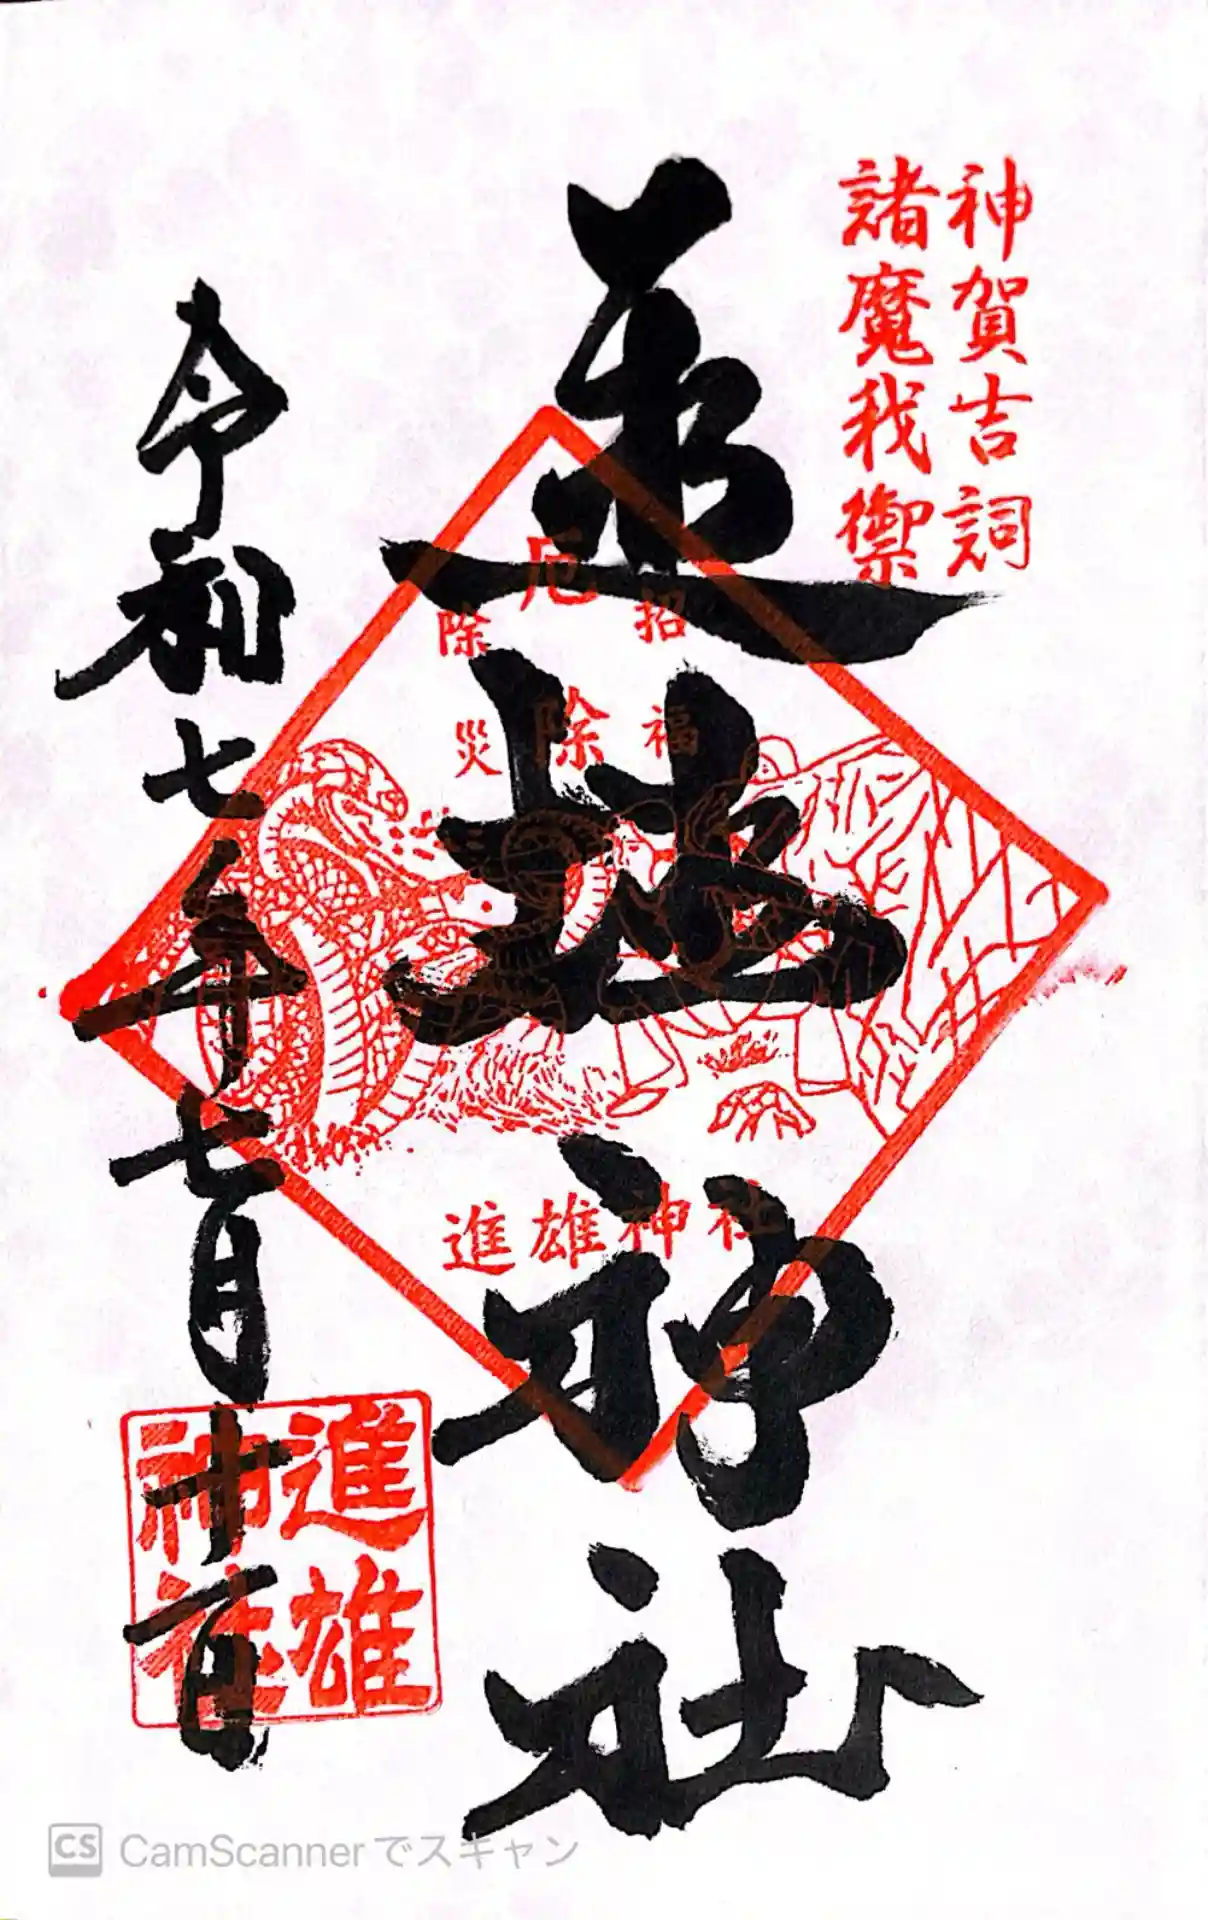 神賀吉詞
諸魔我禦
進雄神社
招福
厄除
除災
進雄神社
令和七年七月十二日
進雄
神社
CS CamScannerでスキャン